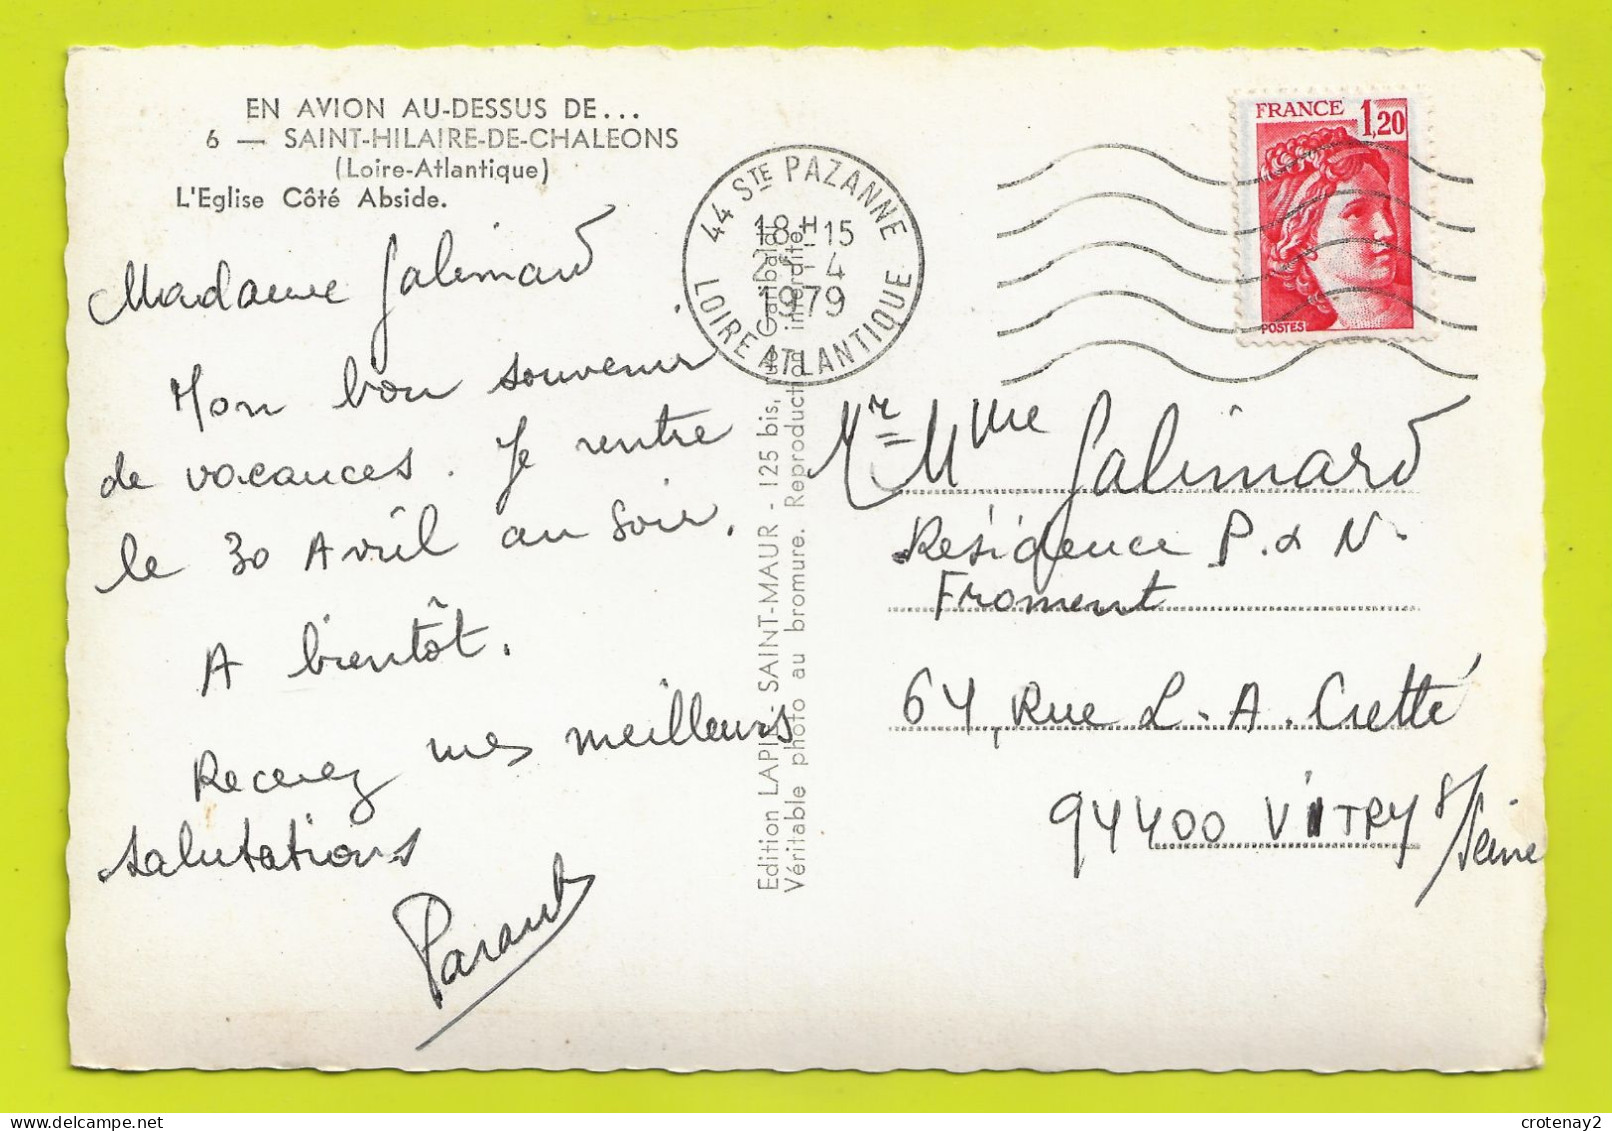 EN AVION AU-DESSUS DE...
6 — SAINT-HILAIRE-DE-CHALEONS
(Loire-Atlantique)
L'Eglise Côté Abside.
Madame Galimard
Mon bon souvenir
de vacances. Je rentre
le 30 Avril au soir.
A bientôt.
Recevez mes meilleurs
salutations
Edition LAPIE SAINT-MAUR - 125 bis, Garibaldi
Véritable photo au bromure. Reproduct interdite
44 STE PAZANNE
18H15
-4
1979
LOIRE ATLANTIQUE
FRANCE 1,20
POSTES
Mr = Mme Galimard
Résidence P. & N.
Froment
64, Rue L. A. Cretté
94400 VITRY s/Seine
crotenay2